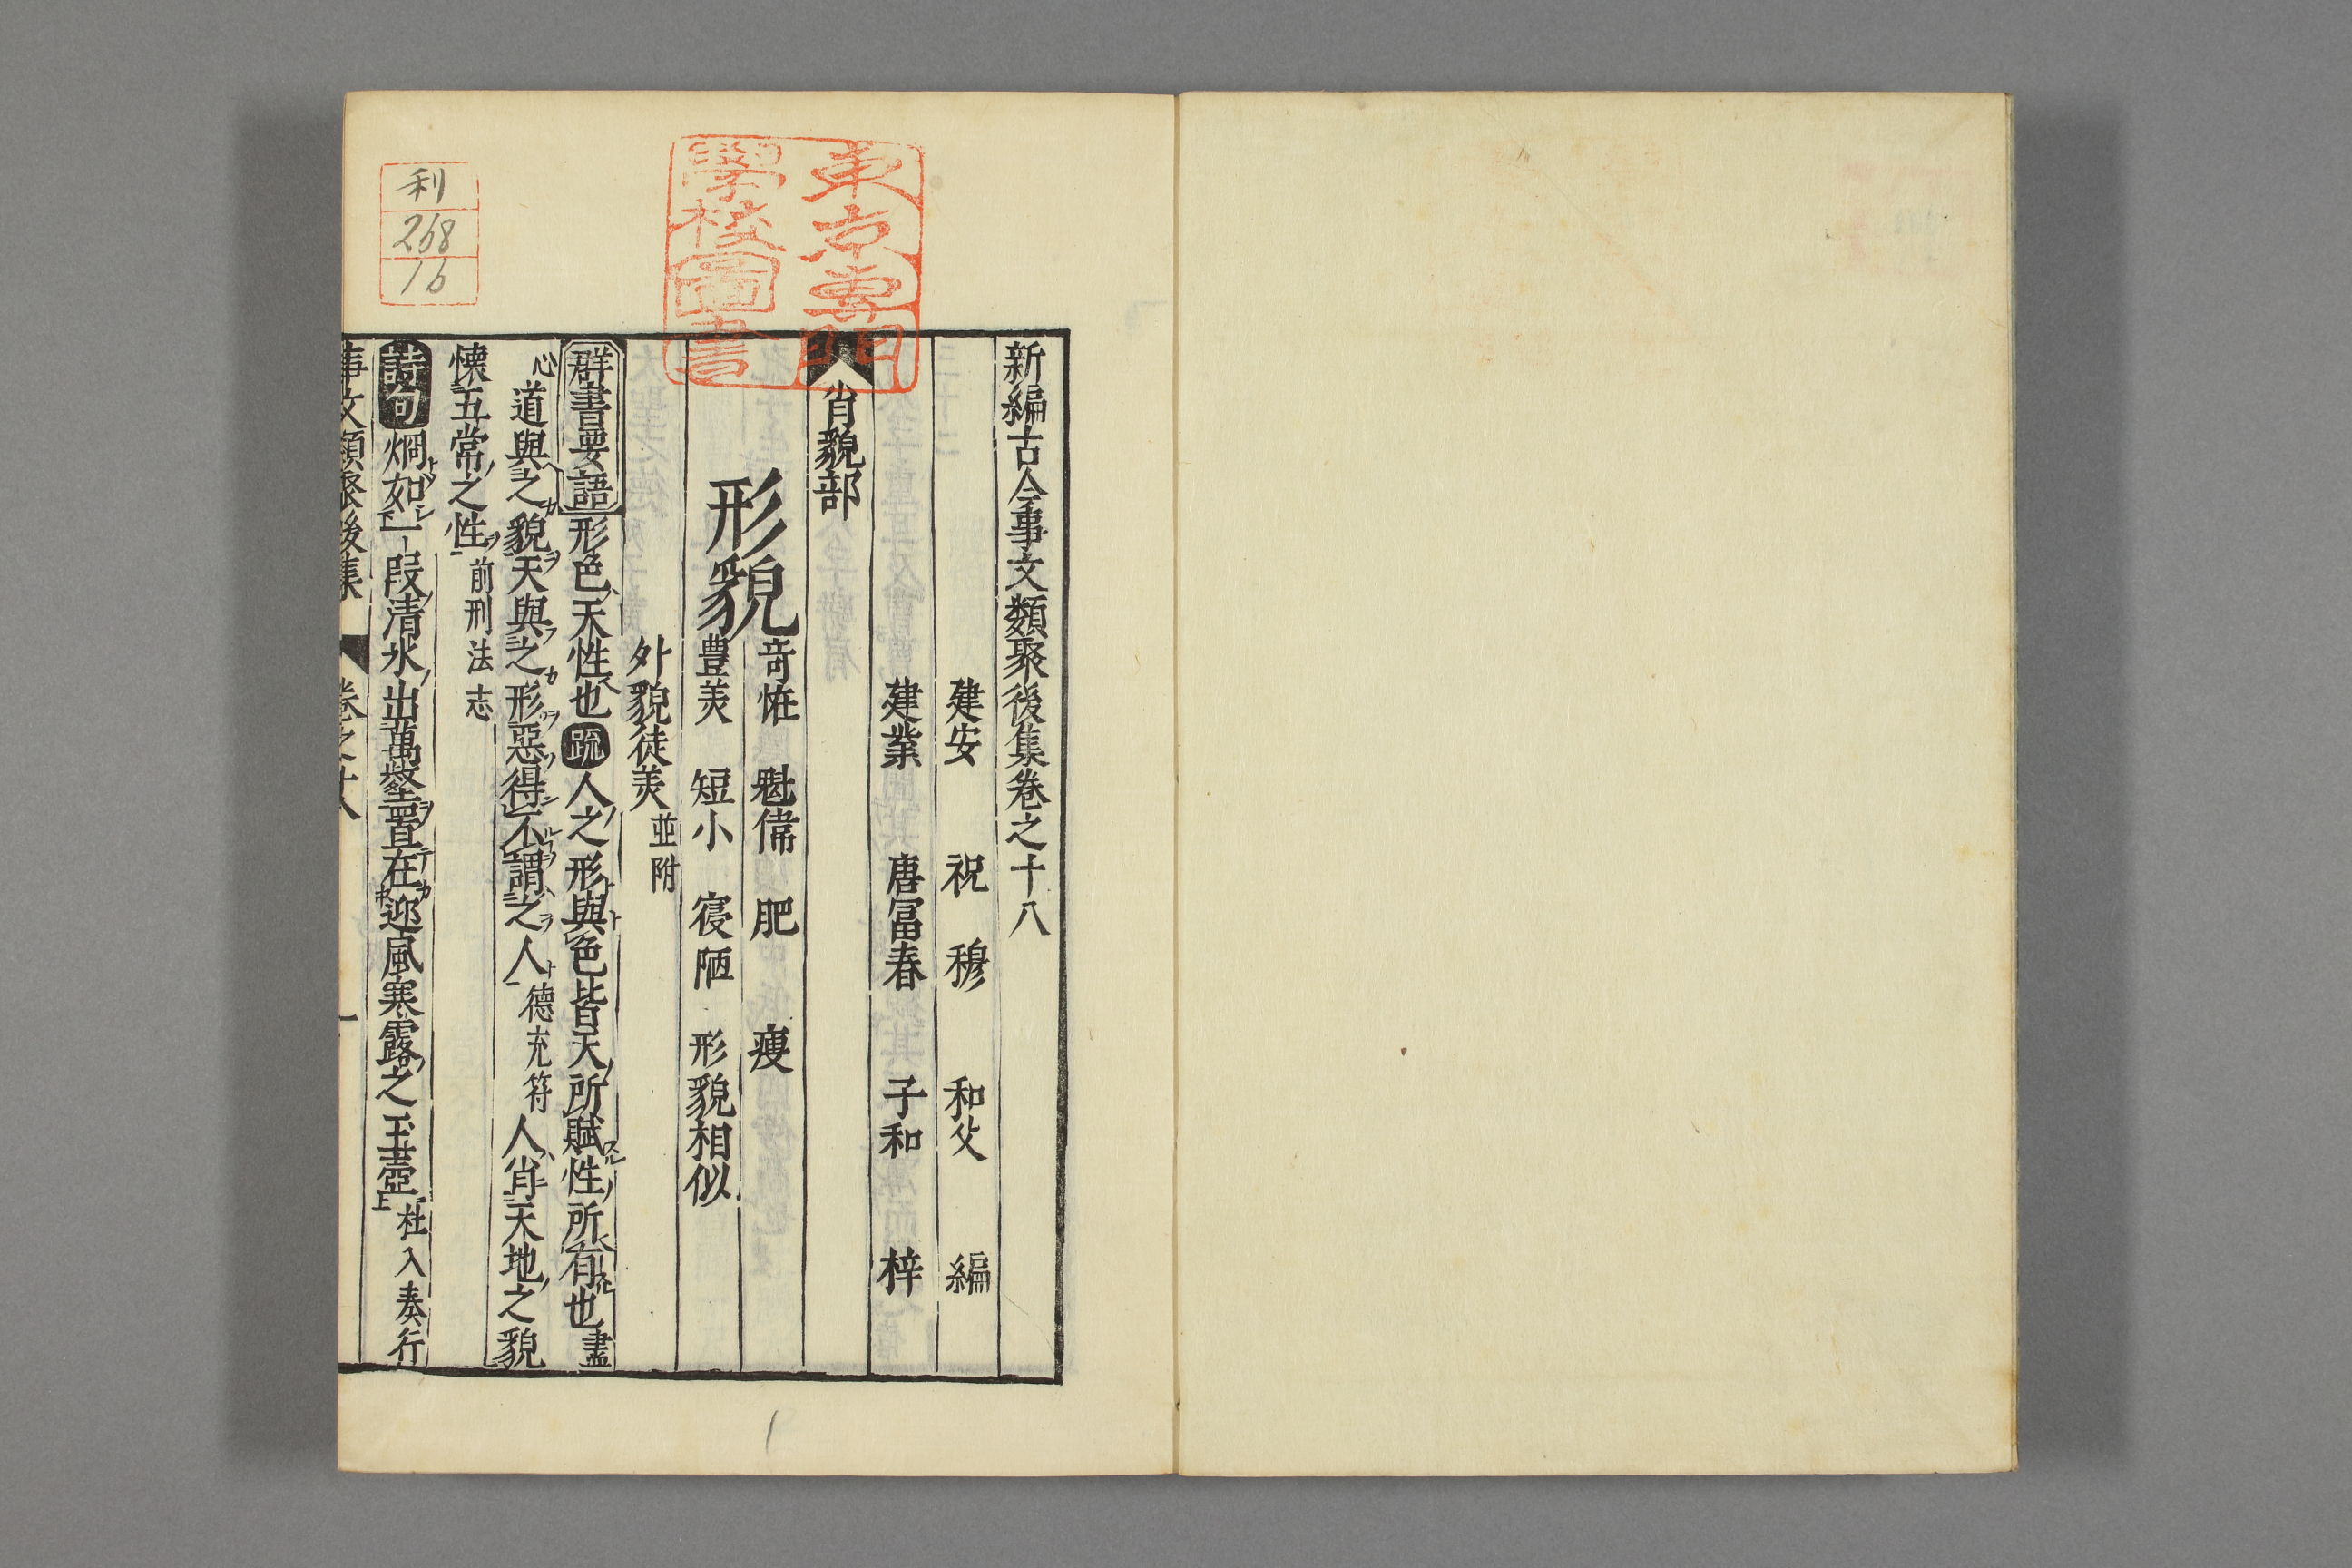 新編古今事文類聚後集卷之十八
建安 祝 穆 和父 編
建業 唐冨春 子和 梓
肖貌部
形貌
竒恠 魁偉 肥 瘦
豊美 短小 寝陋 形貌相似
外貌徒美 並附
群書要語 形色天性也 疏 人之形與色皆天所賦性所有也 盡
心 道與之貌天與之形惡得不謂之人 德充符 人肖天地之貌
懐五常之性 前刑法志
詩句 烱如一段清氷出萬壑置在迎風寒露之玉壺 杜入奏行
事文類聚後集 卷之十八 一
東京專門
學校圖書
利
268
16
1